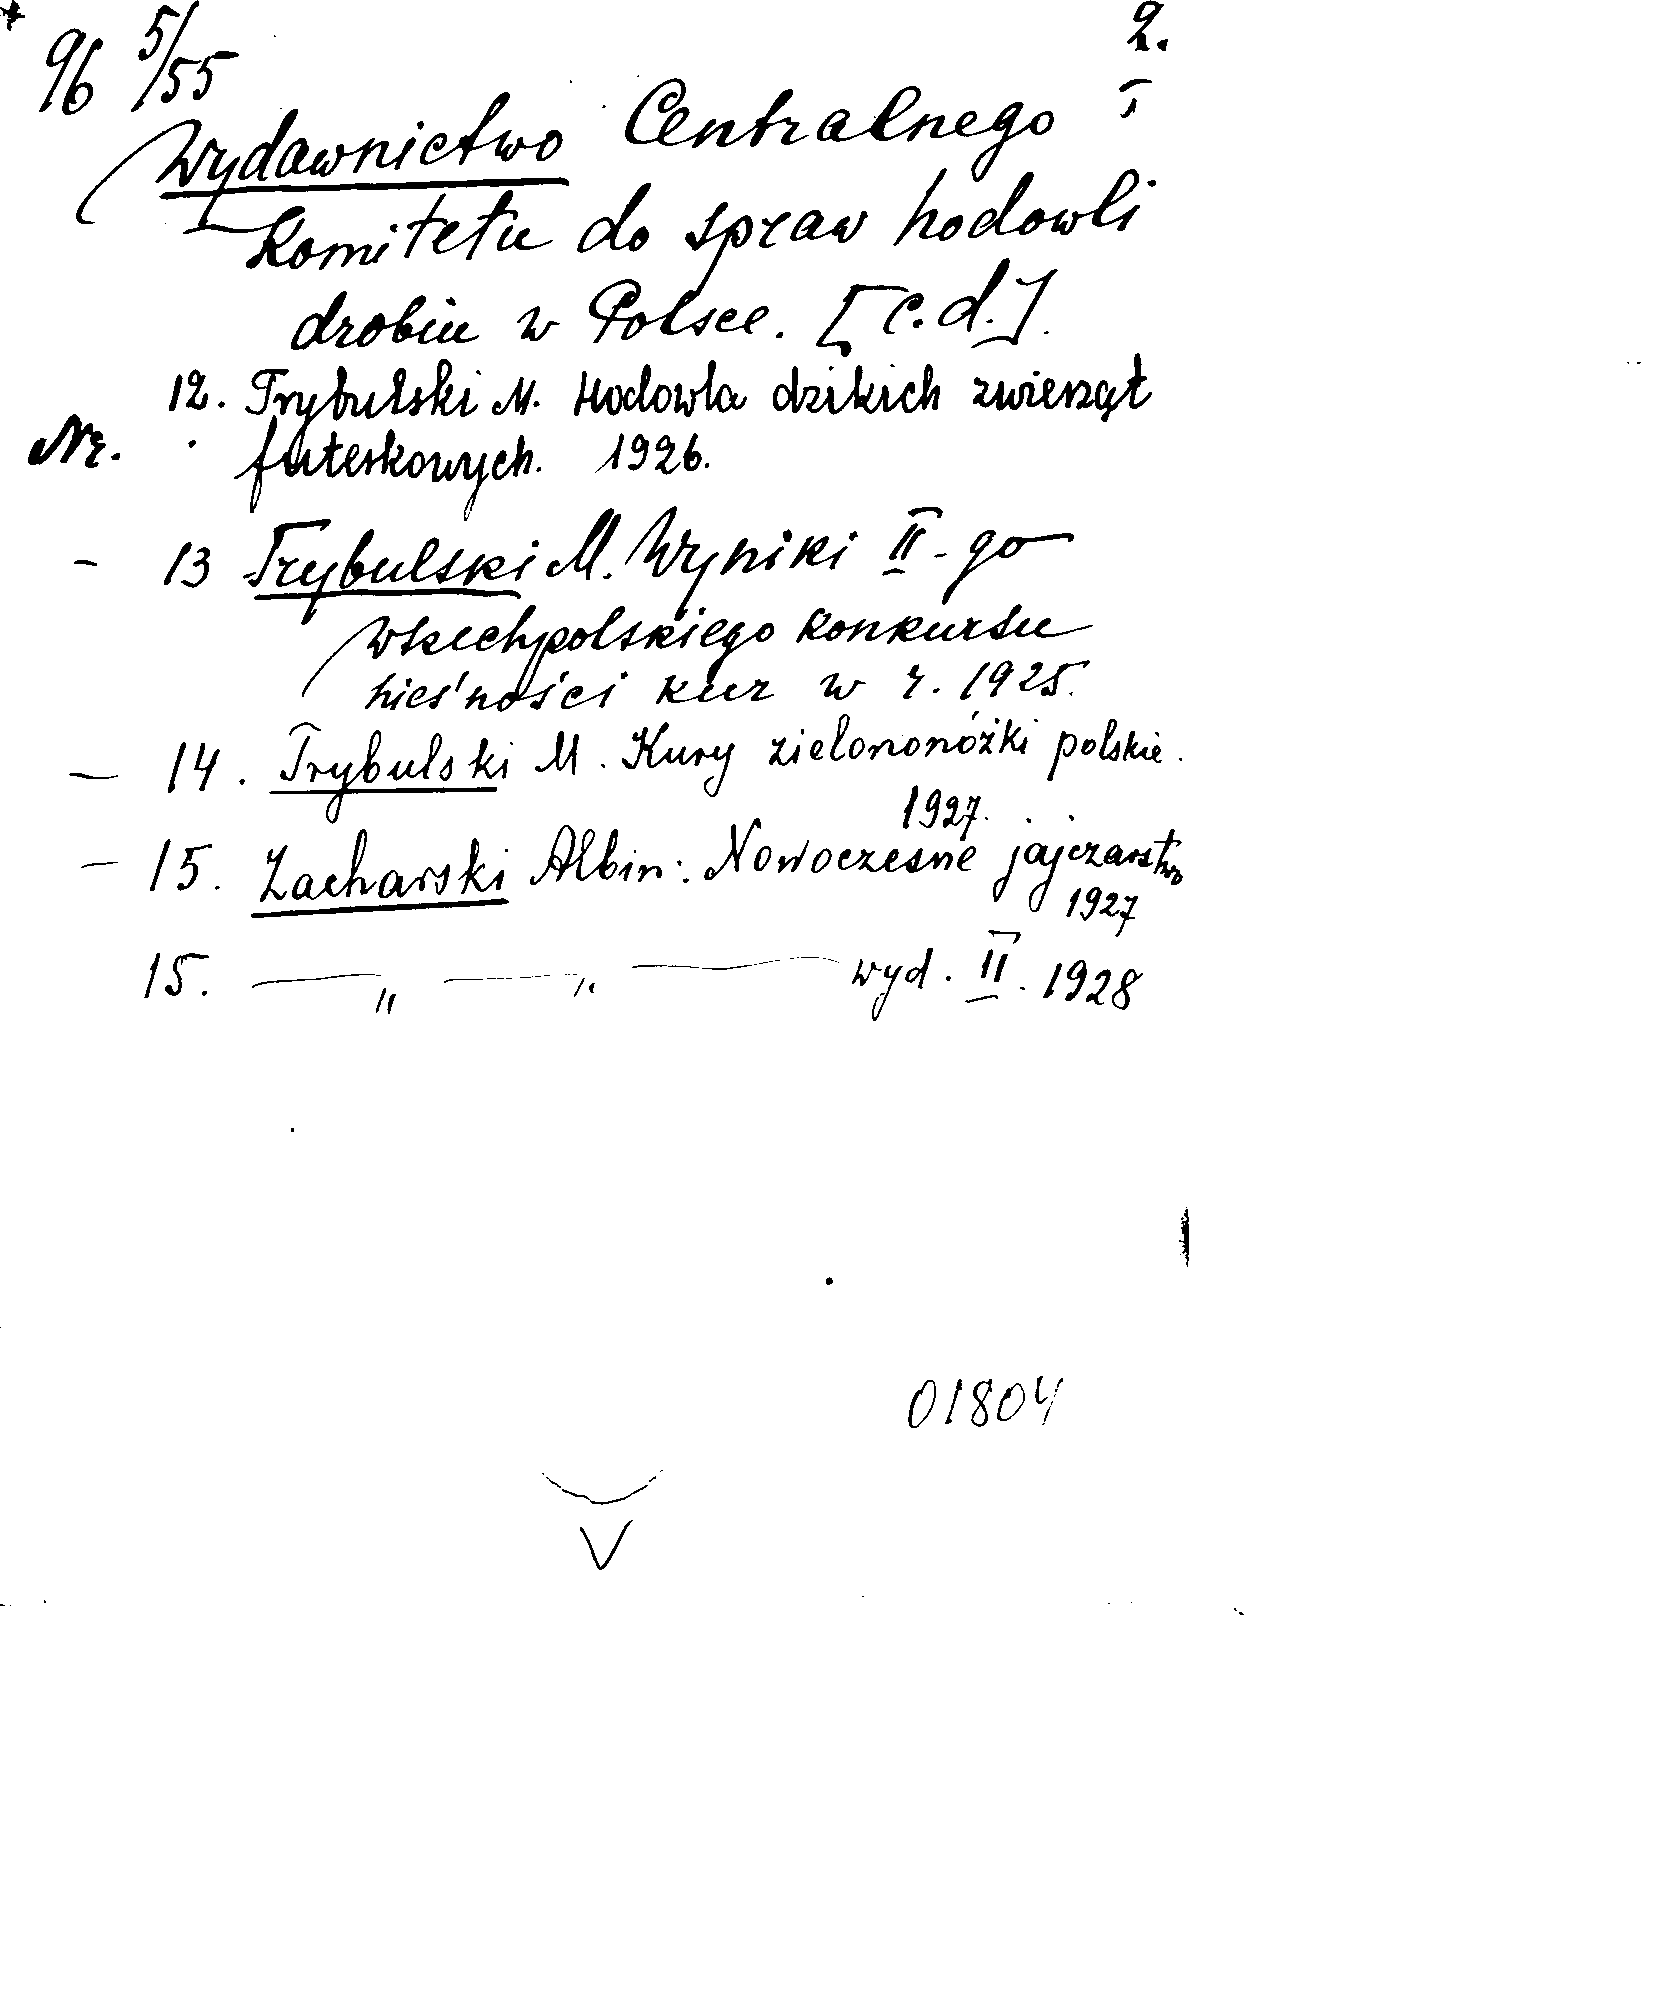 96 5/55
2.
Wydawnictwo Centralnego
Komitetu do spraw hodowli
drobiu w Polsce. [c.d.].
12. Trybulski M. Hodowla dzikich zwierząt
Nr. futerkowych. 1926.
- 13 Trybulski M. Wyniki II-go
wszechpolskiego konkursu
nieśności kur w r. 1925.
- 14. Trybulski M. Kury zielononóżki polskie.
1927.
- 15. Zacharski Albin: Nowoczesne jajczarstwo
1927
15. — „ — „ — wyd. II. 1928
01804